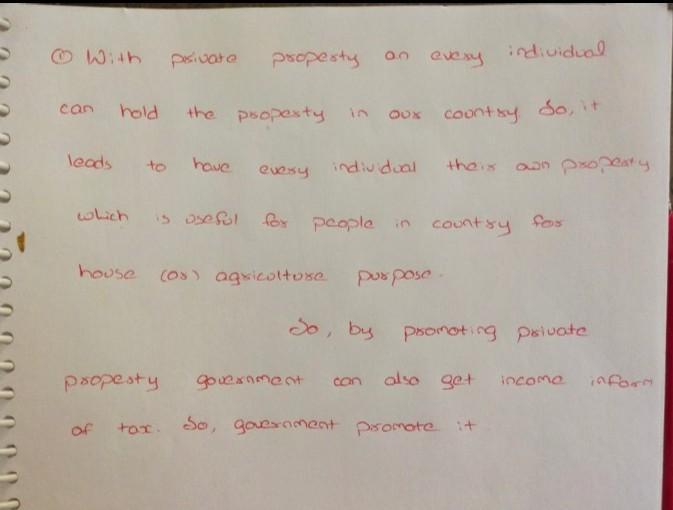 ① With private property an every individual
can hold the property in our country. So, it
leads to have every individual their own property
which is useful for people in country for
house (or) agriculture purpose.
So, by promoting private
property government can also get income inform
of tax. So, government promote it